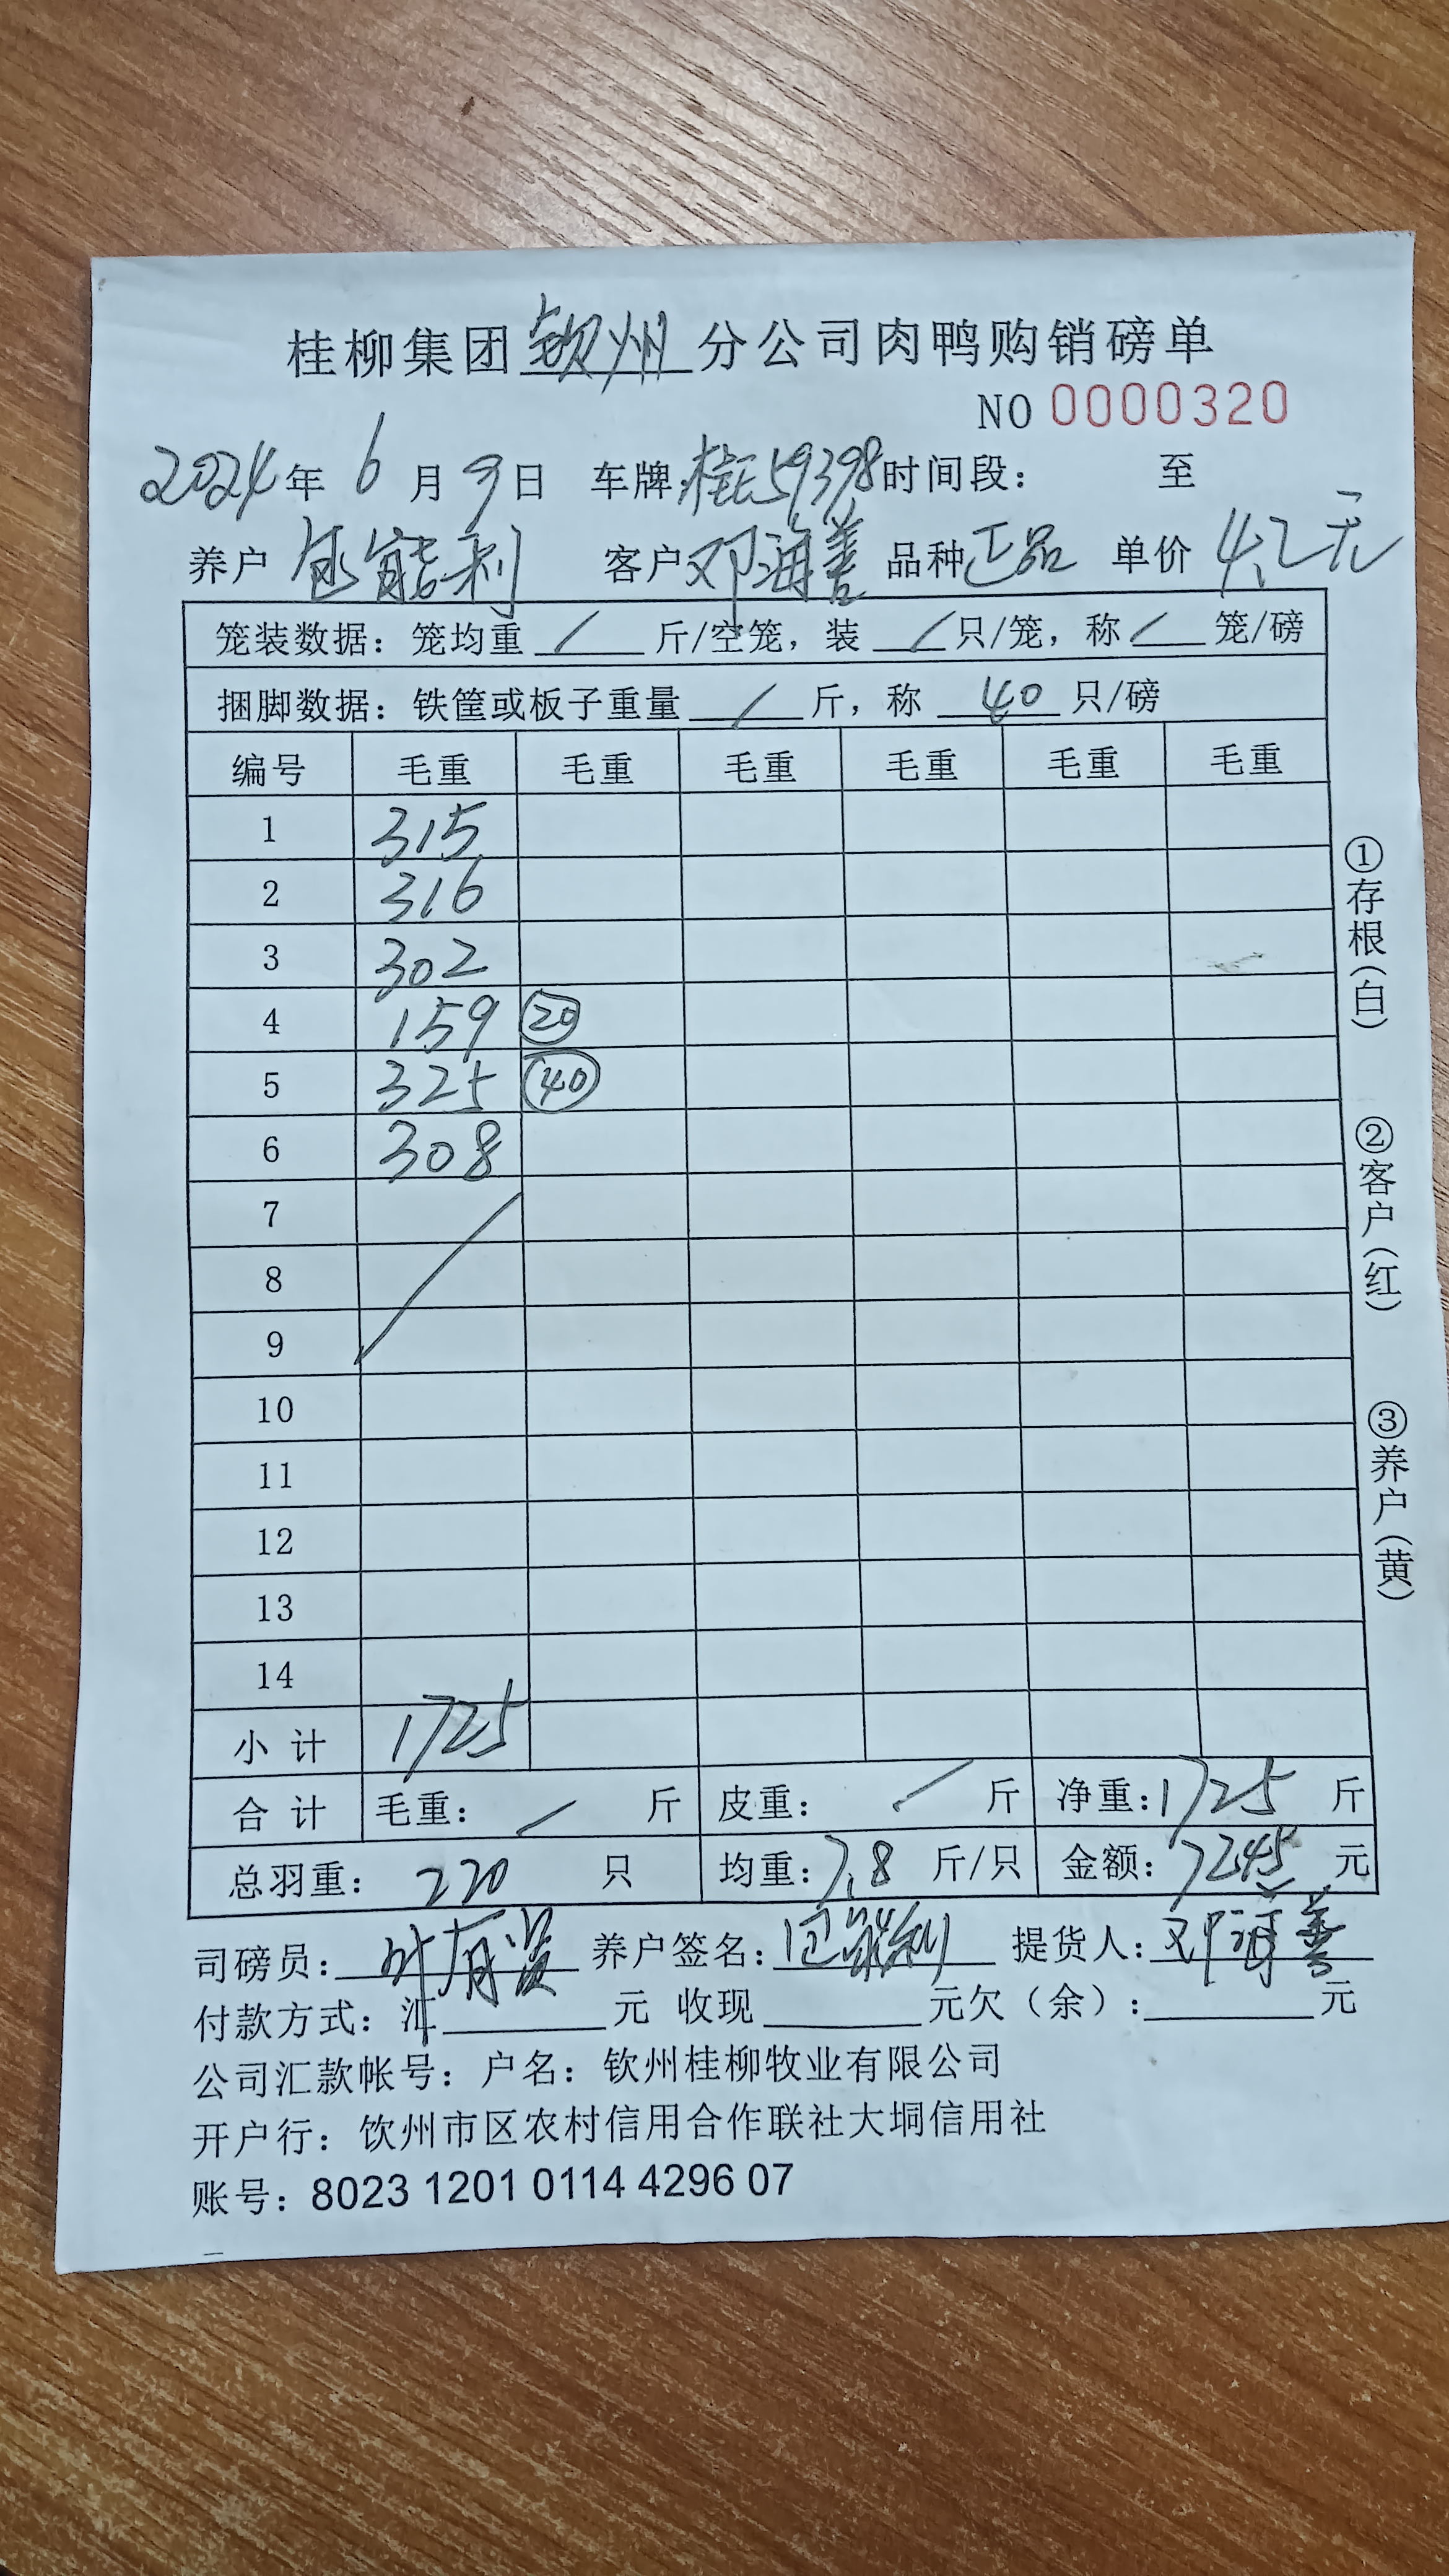 桂柳集团钦州分公司肉鸭购销磅单
NO 0000320
2024年 6月 9日 车牌:桂E59398 时间段: 至
养户 能利 客户 邓海善 品种 正品 单价 4.2元
笼装数据: 笼均重 / 斤/空笼, 装 / 只/笼, 称 / 笼/磅
捆脚数据: 铁筐或板子重量 / 斤, 称 40 只/磅
编号 毛重 毛重 毛重 毛重 毛重 毛重
1 315
2 316
3 302
4 159 ⑳
5 325 ㊵
6 308
7
8
9
10
11
12
13
14
小计 1725
合计 毛重: / 斤 皮重: / 斤 净重: 1725 斤
总羽重: 220 只 均重: 7.8 斤/只 金额: 7245 元
司磅员: 叶 养户签名: 能利 提货人: 邓海善
付款方式: 汇 元 收现 元欠(余): 元
公司汇款帐号: 户名: 钦州桂柳牧业有限公司
开户行: 饮州市区农村信用合作联社大垌信用社
账号: 8023 1201 0114 4296 07
①存根(白)
②客户(红)
③养户(黄)